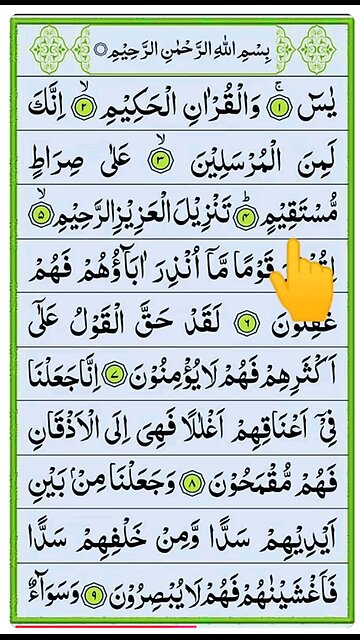 بِسْمِ اللهِ الرَّحْمٰنِ الرَّحِيْمِ
يٰسٓ ۚ ﴿١﴾ وَالْقُرْاٰنِ الْحَكِيْمِ ۙ ﴿٢﴾ اِنَّكَ
لَمِنَ الْمُرْسَلِيْنَ ۙ ﴿٣﴾ عَلٰى صِرَاطٍ
مُّسْتَقِيْمٍ ؕ ﴿٤﴾ تَنْزِيْلَ الْعَزِيْزِ الرَّحِيْمِ ۙ ﴿٥﴾
قَوْمًا مَّاۤ اُنْذِرَ اٰبَآؤُهُمْ فَهُمْ
غٰفِلُوْنَ ﴿٦﴾ لَقَدْ حَقَّ الْقَوْلُ عَلٰٓى
اَكْثَرِهِمْ فَهُمْ لَا يُؤْمِنُوْنَ ﴿٧﴾ اِنَّا جَعَلْنَا
فِيْٓ اَعْنَاقِهِمْ اَغْلٰلًا فَهِيَ اِلَى الْاَذْقَانِ
فَهُمْ مُّقْمَحُوْنَ ﴿٨﴾ وَجَعَلْنَا مِنْۢ بَيْنِ
اَيْدِيْهِمْ سَدًّا وَّمِنْ خَلْفِهِمْ سَدًّا
فَاَغْشَيْنٰهُمْ فَهُمْ لَا يُبْصِرُوْنَ ﴿٩﴾ وَسَوَآءٌ